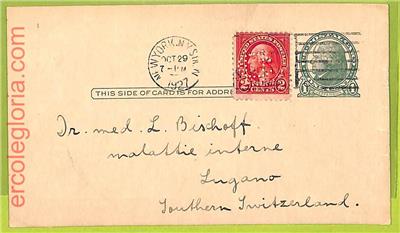 NEW YORK, N.Y. STA. N
OCT 29
7-PM
1927
THIS SIDE OF CARD IS FOR ADDRE
2 CENTS 2
UNITED STATES POSTAGE
1
Dr. med. L. Bischoff
malattie interne
Lugano
Southern Switzerland.
ercolegloria.com